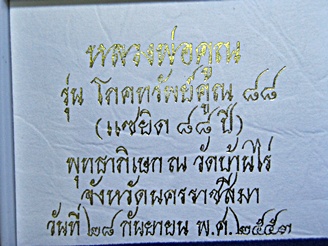 หลวงพ่อคูณ
รุ่น โภคทรัพย์คูณ ๘๘
(แซยิด ๘๘ ปี)
พุทธาภิเษก ณ วัดบ้านไร่
จังหวัดนครราชสีมา
วันที่ ๒๘ กันยายน พ.ศ. ๒๕๕๓